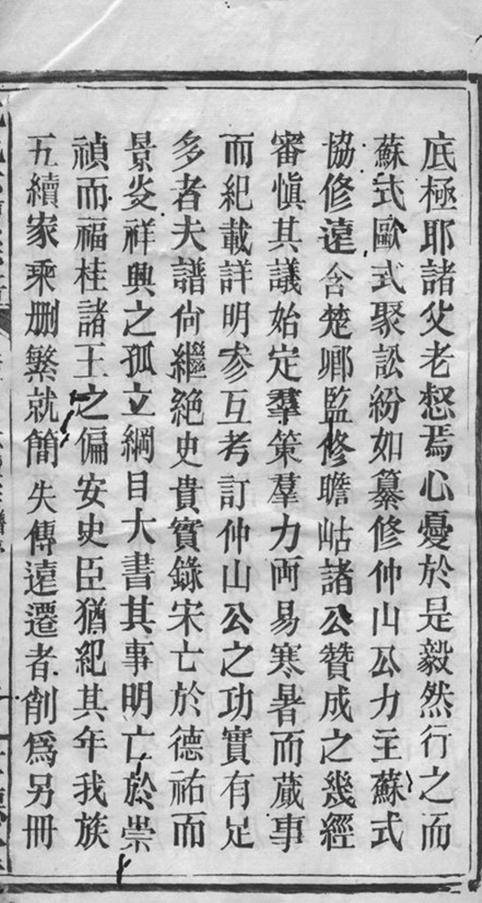 底極耶諸父老惄焉心憂於是毅然行之而
蘇式歐式聚訟紛如纂修仲山公力主蘇式
協修遠含楚卿監修瞻岵諸公贊成之幾經
審慎其議始定羣策羣力兩易寒暑而蕆事
而紀載詳明參互考訂仲山公之功實有足
多者夫譜尙繼絕史貴實錄宋亡於德祐而
景炎祥興之孤立綱目大書其事明亡於崇
禎而福桂諸王之偏安史臣猶紀其年我族
五續家乘刪繁就簡失傳遠遷者削爲另冊